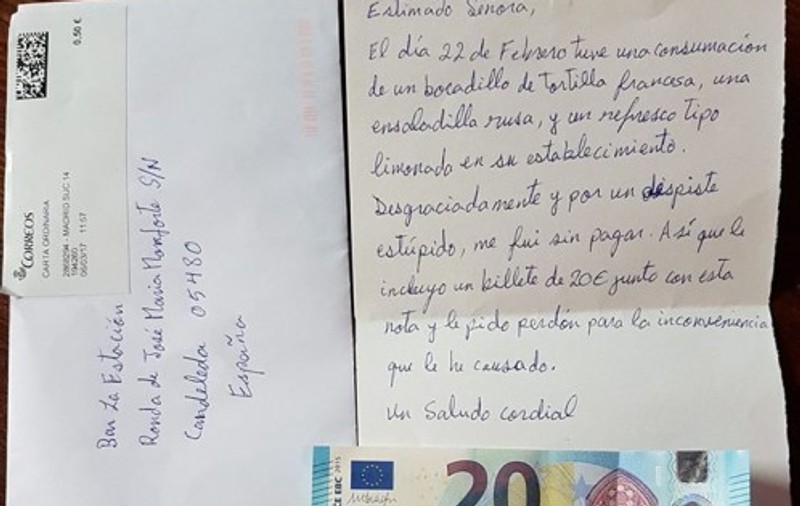 0,50 €
CORREOS
CARTA ORDINARIA
2868294 - MADRID SUC 14
194260
06/03/17 11:07
Bar La Estación
Ronda de José Maria Monforte S/N
Candeleda 05480
España
Estimado Senora,
El día 22 de Febrero tuve una consumación
de un bocadillo de tortilla francesa, una
ensaladilla rusa, y un refresco tipo
limonada en su establecimiento.
Desgraciadamente y por un despiste
estúpido, me fui sin pagar. Así que le
incluyo un billete de 20€ junto con esta
nota y le pido perdón para la inconveniencia
que le he causado.
Un Saludo cordial
EBC 2015
20